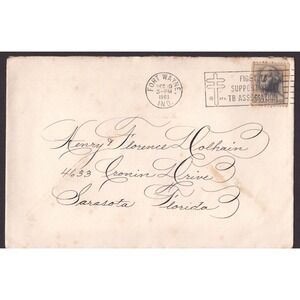 FORT WAYNE,
DEC
PM
1963
IND.
FIGHT
SUPPORT
TB ASSOCIATION
Henry & Florence Colhain
4633 Cronin Drive
Sarasota Florida